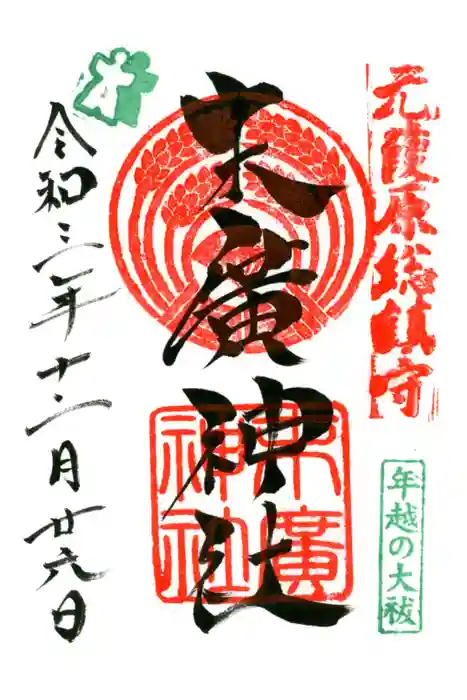 元葭原総鎮守
年越の大祓
末廣神社
末廣
神社
令和三年十二月廿六日